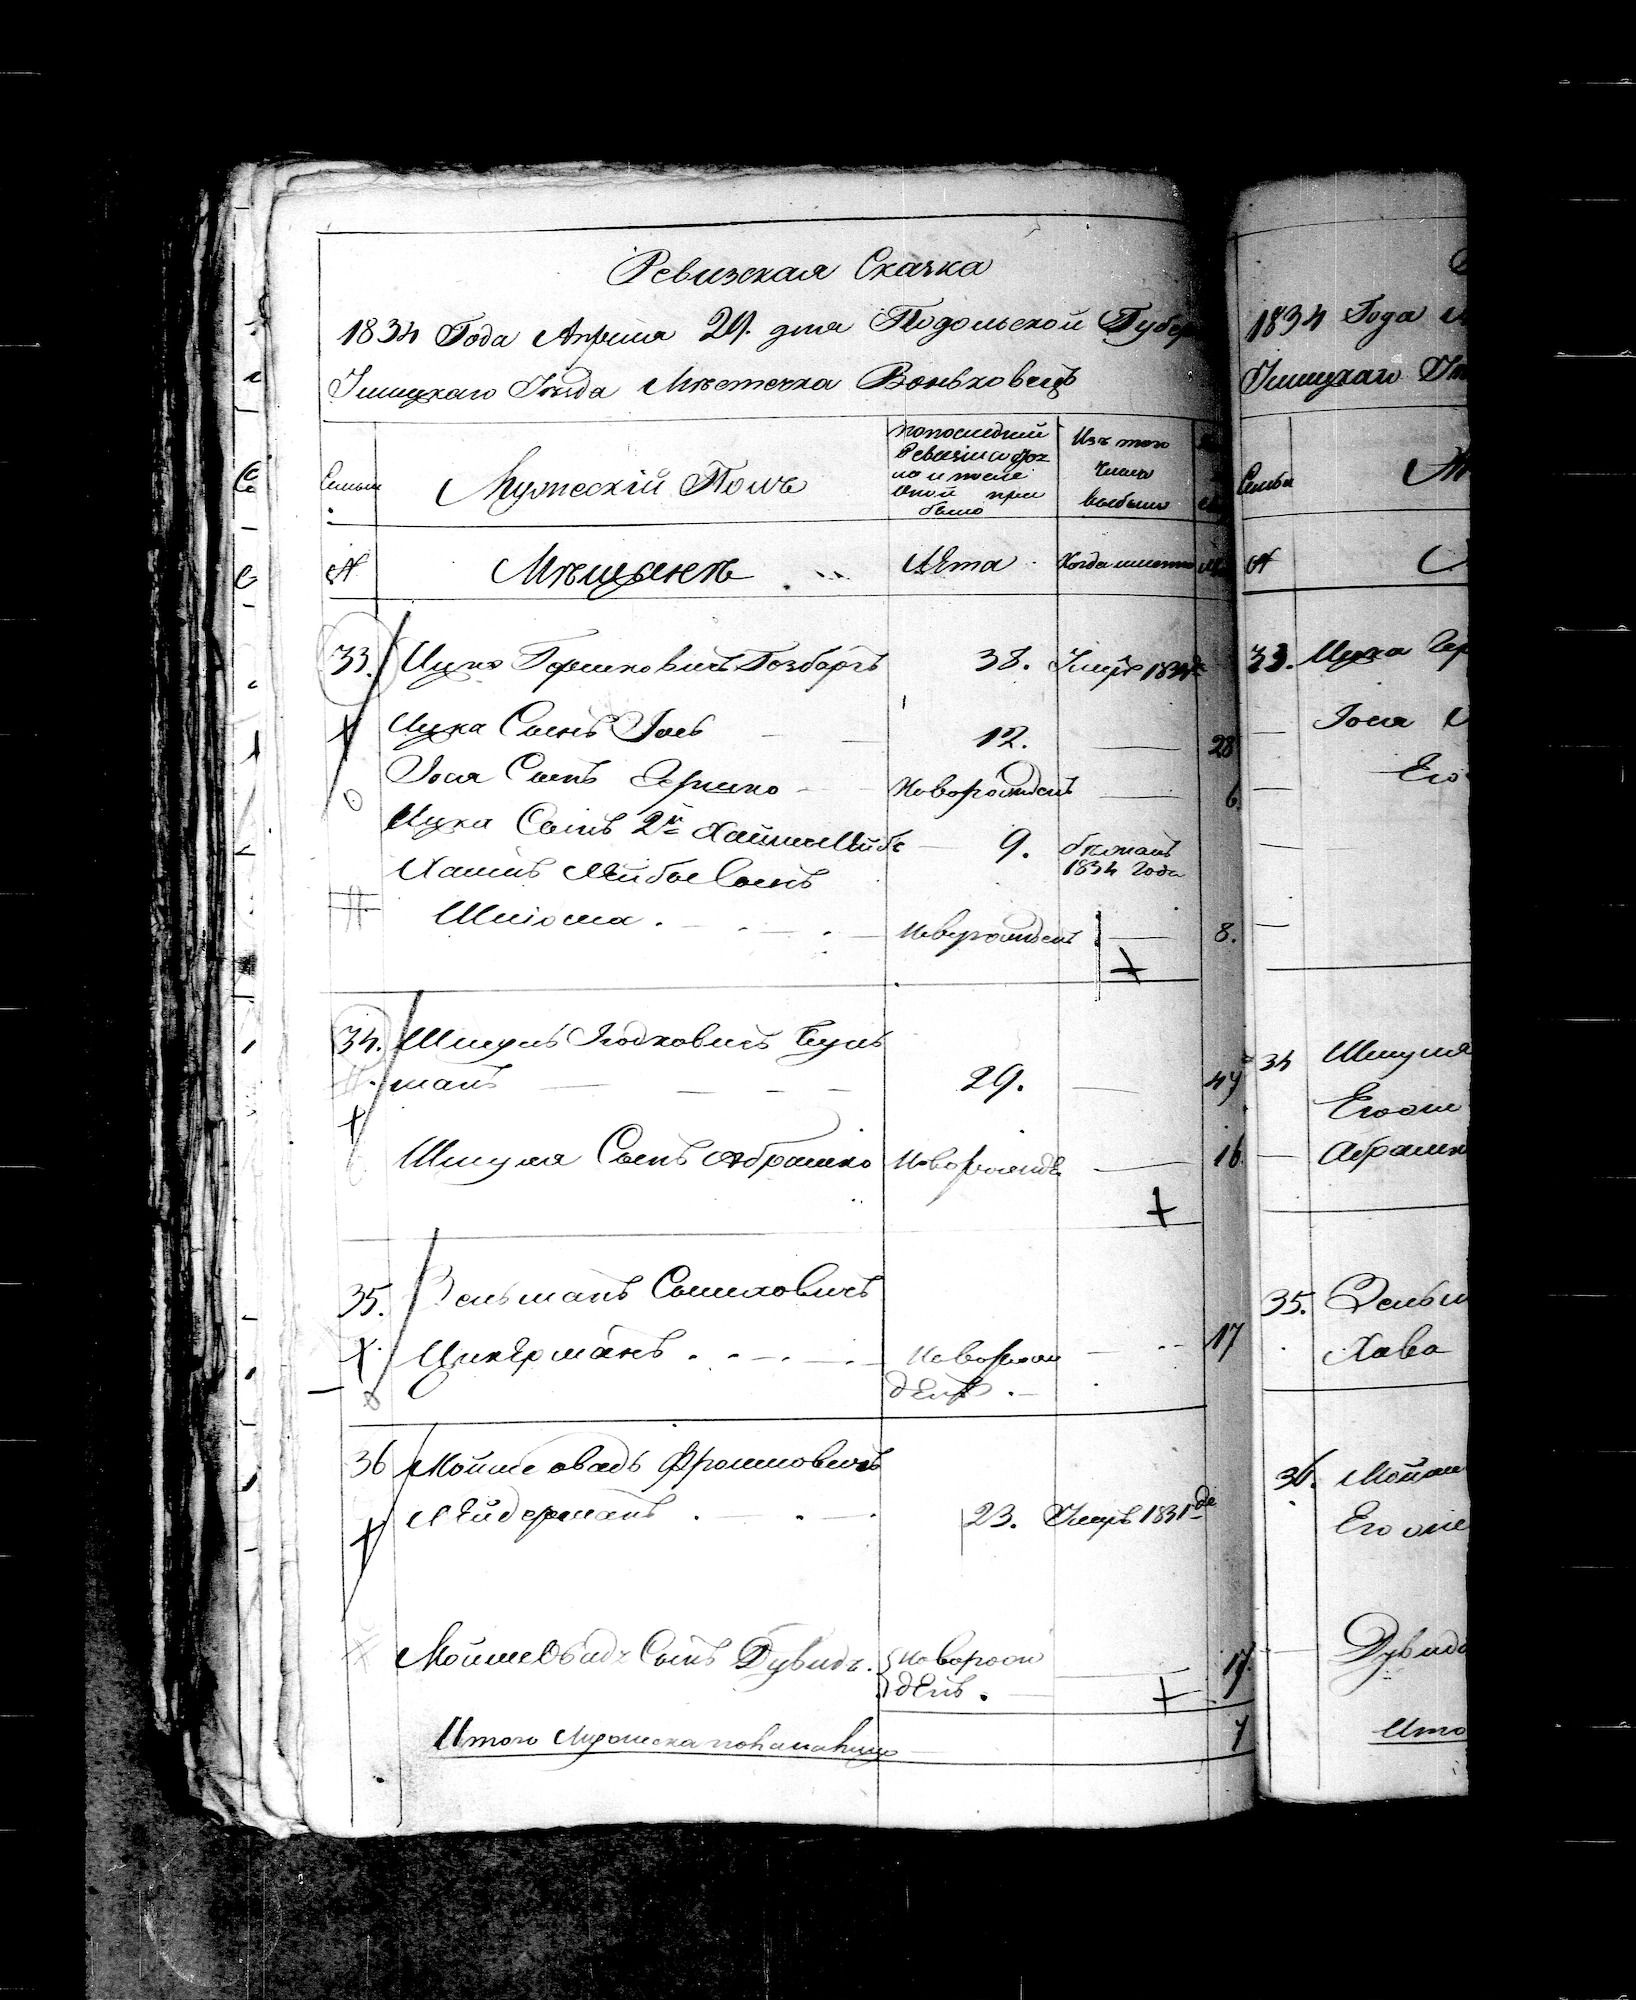 Ревизская Сказка
1834 Года Апреля 29. дня Подольской Губер
Ушицкаго Уѣзда Мѣстечка Воньковецъ
Семьи
Мужескій Полъ
попоследней
Ревизіи
но и после
оной при
было
Изъ того
числа
выбыло
№
Мѣщанъ
Лѣта
Когда именно
33. Ицко Гершковичъ 38. Умеръ 1834
Ицка Сынъ Іось 12. 28
Іося Сынъ Гершко Новорожденъ 6
Ицка Сынъ 2й Хаимъ Лейбъ 9. бѣжалъ
1834 Года
Хаимъ Лейбы Сынъ
Шліома Новорожденъ 8.
34. Шмуль Іодковичъ Гуль
манъ 29. 47
Шмуля Сынъ Абрашко Новорожденъ 16
35. Зельманъ Сымховичъ
Цикерманъ Новорож 17
денъ
36 Мойше Овадь Фроимовичъ
Лейдерманъ 23. Умеръ 1831де
Мойше Овадъ Сынъ Дувидъ. Новорож 17.
денъ.
Итого Мужеска 7
1834 Года
Ушицкаго
Семьи
№
33. Ицка Гер
Іося
Его
34 Шмуля
Его
Абрашк
35. Зельм
Хава
36. Мойше
Его
Дувид
Ито